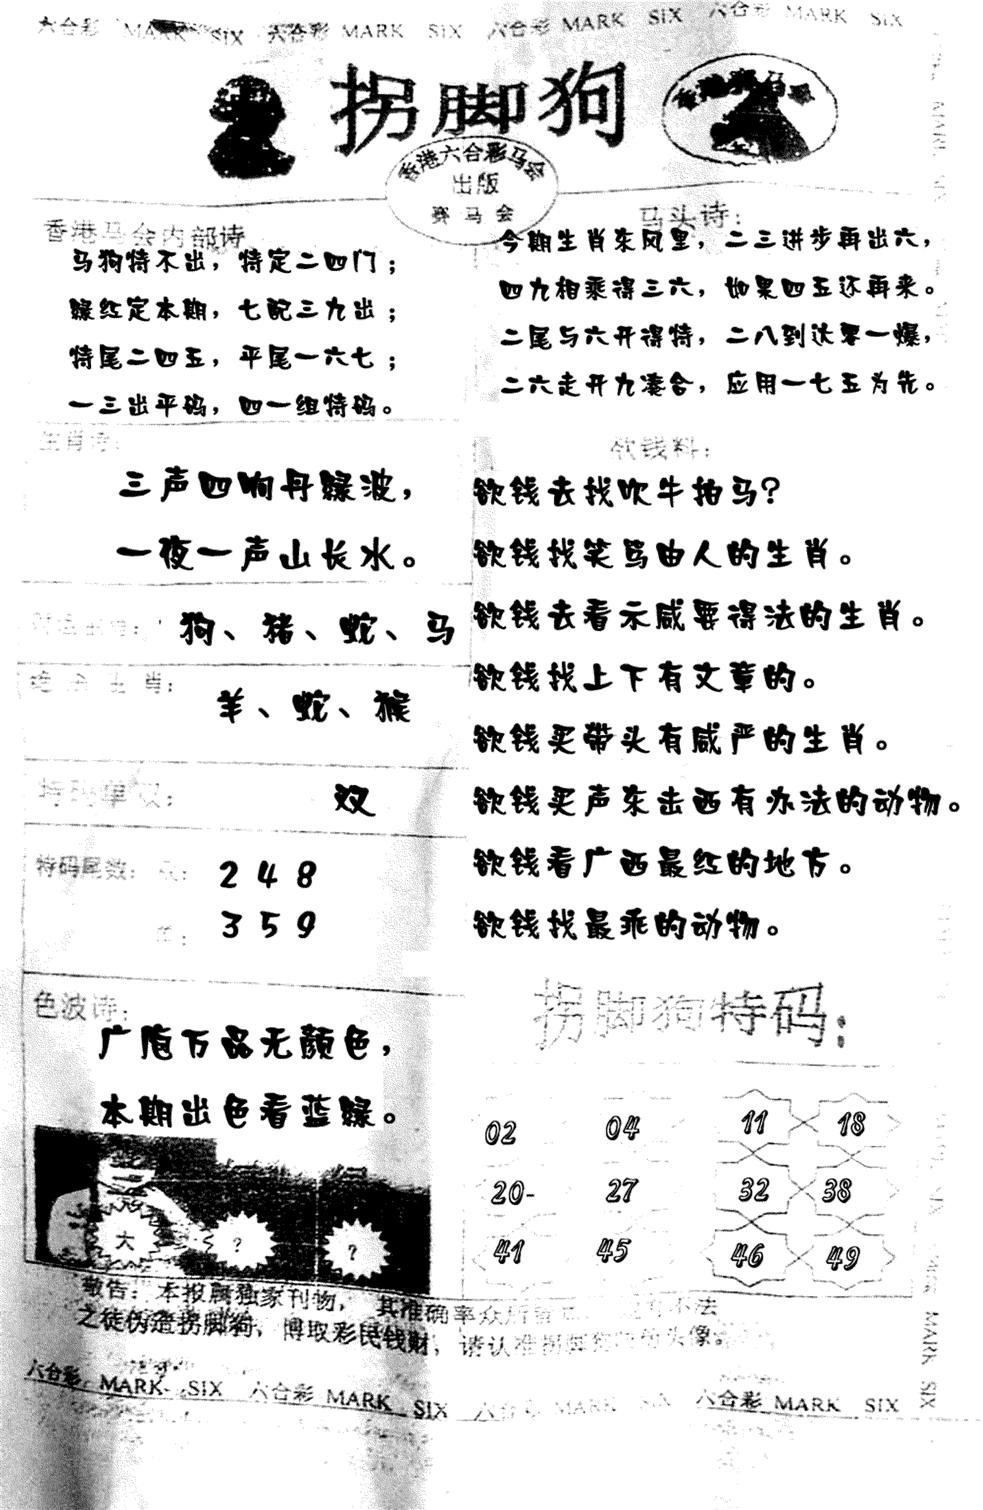 六合彩 MARK SIX 六合彩 MARK SIX 六合彩 MARK SIX 六合彩 MARK SIX
拐脚狗
香港赛马会
香港六合彩马会
出版
赛马会
香港马会内部诗
马狗特不出，特定二四门；
绿红定本期，七配三九出；
特尾二四五，平尾一六七；
一三出平码，四一组特码。
马头诗：
今期生肖东风里，二三进步再出六，
四九相乘得三六，如果四五还再来。
二尾与六开得特，二八到达零一爆，
二六走开九凑合，应用一七五为先。
生肖诗：
三声四响丹绿波，
一夜一声山长水。
狗、猪、蛇、马
绝杀生肖：
羊、蛇、猴
特码单双：
双
特码尾数：双：
2 4 8
单：
3 5 9
色波诗：
广陁万品无颜色，
本期出色看蓝绿。
大
?
?
欲钱料：
欲钱去找吹牛拍马？
欲钱找笑骂由人的生肖。
欲钱去看示威要得法的生肖。
欲钱找上下有文章的。
欲钱买带头有威严的生肖。
欲钱买声东击西有办法的动物。
欲钱看广西最红的地方。
欲钱找最乖的动物。
拐脚狗特码：
02 04 11 18
20- 27 32 38
41 45 46 49
敬告：本报属独家刊物，其准确率众所 不法
之徒伪造拐脚狗，博取彩民钱财，请认准拐脚狗 的头像。
六合彩 MARK SIX 六合彩 MARK SIX 六合彩 MARK SIX 六合彩 MARK SIX
MARK SIX